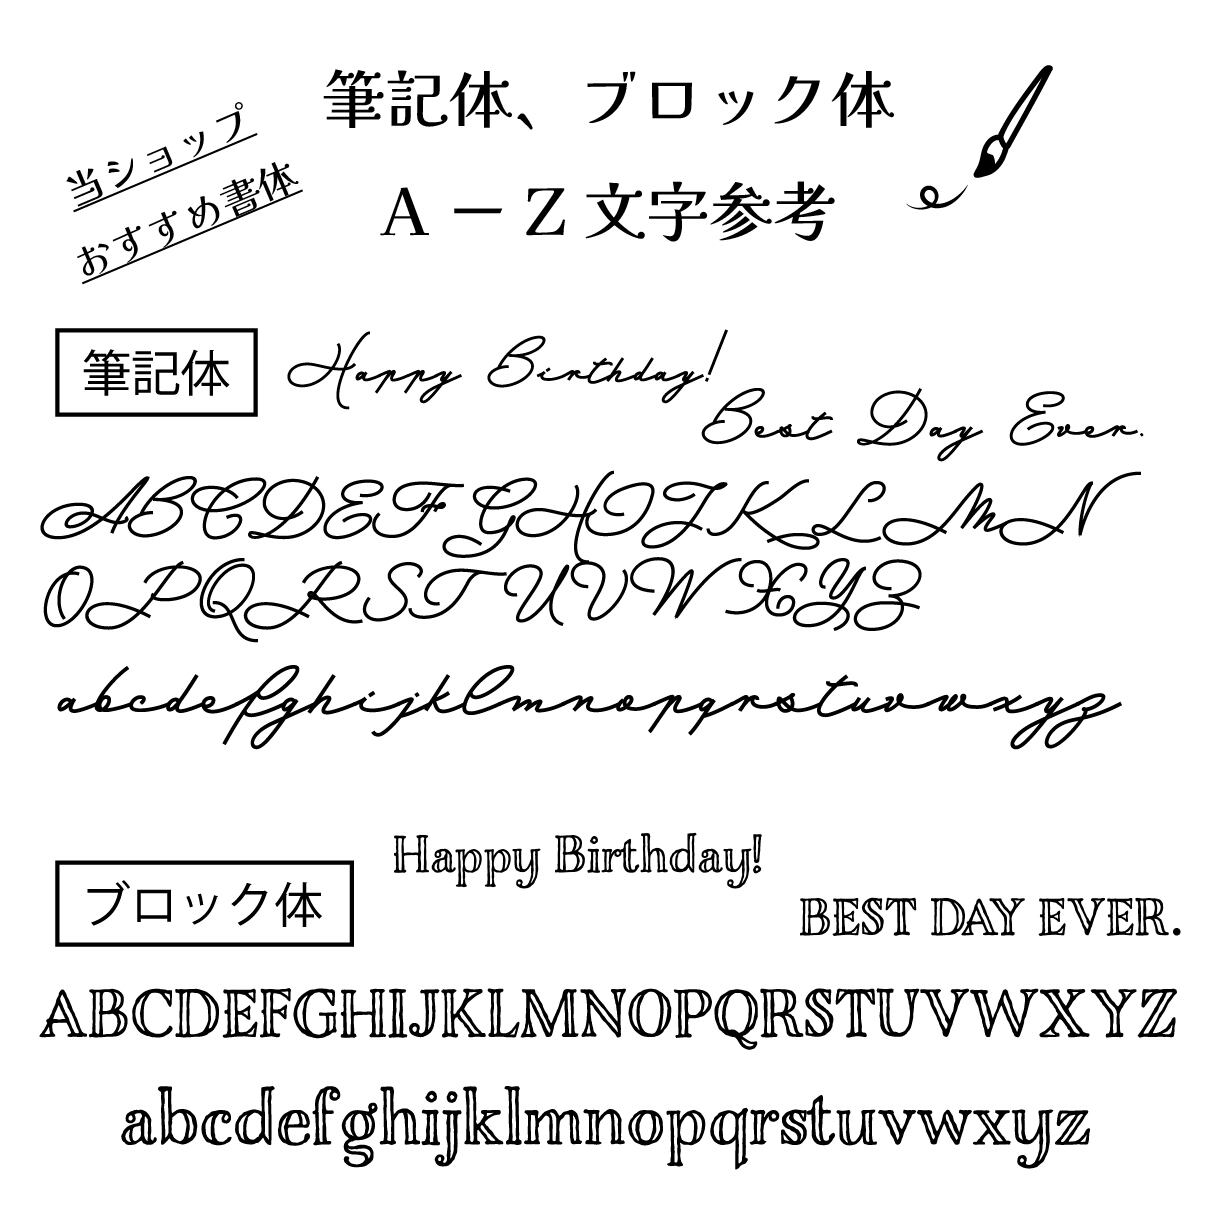 筆記体、ブロック体
A－Z文字参考
当ショップ
おすすめ書体
筆記体
Happy Birthday!
Best Day Ever.
ABCDEFGHIJKLMN
OPQRSTUVWXYZ
abcdefghijklmnopqrstuvwxyz
ブロック体
Happy Birthday!
BEST DAY EVER.
ABCDEFGHIJKLMNOPQRSTUVWXYZ
abcdefghijklmnopqrstuvwxyz